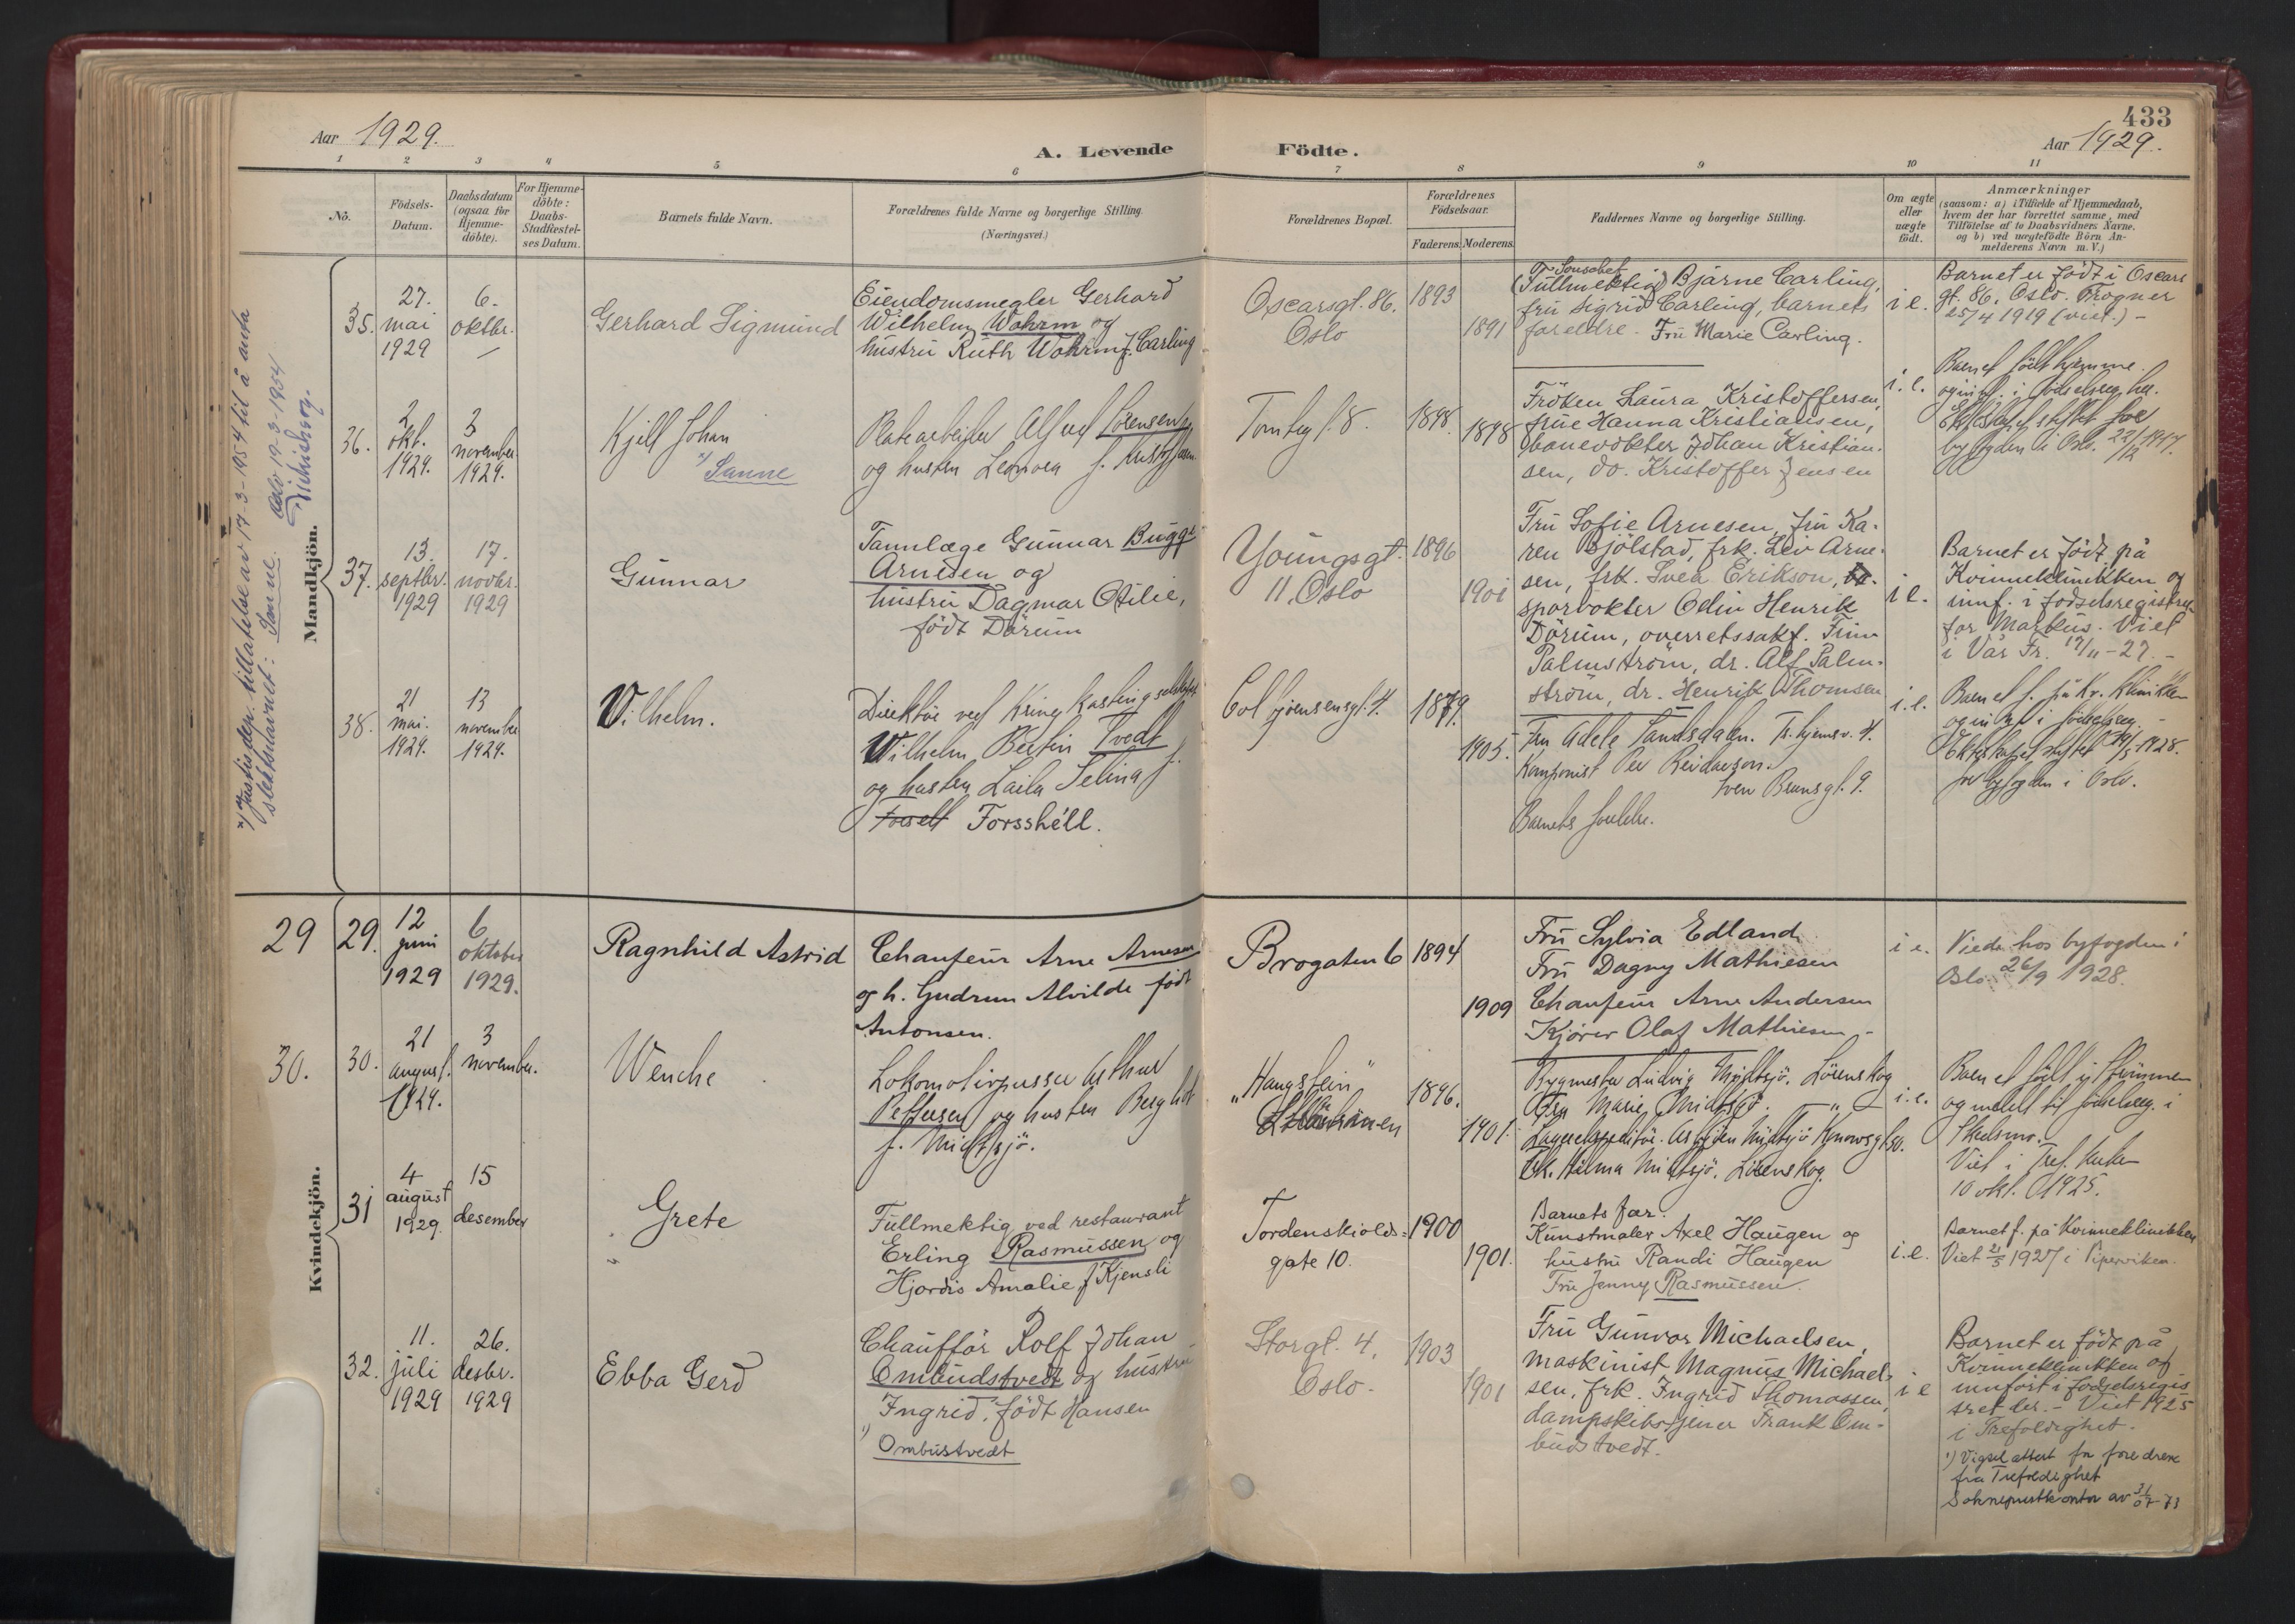 433
Aar 1929.
A. Levende Födte.
Aar 1929.
1 2 3 4 5 6 7 8 9 10 11
No.
Födsels-Datum.
Daabsdatum (ogsaa for Hjemmedöbte).
For Hjemmedöbte: Daabs-Stadfestelses Datum.
Barnets fulde Navn.
Forældrenes fulde Navne og borgerlige Stilling. (Næringsvei.)
Forældrenes Bopæl.
Forældrenes Födselsaar.
Faderens. Moderens.
Faddernes Navne og borgerlige Stilling.
Om ægte eller uægte födt.
Anmærkninger
(saasom: a) i Tilfælde af Hjemmedaab, hvem der har forrettet samme, med Tilföielse af to Daabsvidners Navne, og b) ved uægtefödte Börn Anmelderens Navn m. V.)
Mandkjön.
35.
27. mai 1929
6. oktbr.
Gerhard Sigmund
Eiendomsmegler Gerhard
Wilhelm Wohrm og
hustru Ruth Wohrm f. Carling
Oscarsgt. 86.
Oslo
1893
1891
(Fullmektig) Bjarne Carling,
fru Sigrid Carling, barnets
foreldre. Fru Marie Carling.
i e.
Barnet er födt i Oscars
gt. 86, Oslo. Frogner
25/4 1919 (viet.) -
36.
2 okt. 1929.
3 november 1929.
Kjell Johan
x) Sanne
Platearbeider Alfred Sörensen
og hustru
Tomtegt. 8.
1898
1898
Fröken Laura Kristoffersen,
frue Hanna Kristiansen,
banevokter Johan Kristian-
sen, do. Kristoffer Jensen
i. e.
Barnet födt hjemme
22/12 1917.
37.
13. septbr. 1929
17. novbr. 1929
Gunnar
Tannlæge Gunnar Bugge
Arnesen og
hustru Dagmar Otilie,
födt Dörum
Youngsgt.
11, Oslo
1896
1901
Fru Sofie Arnesen, fru Ka-
ren Bjölstad, frk. Liv Arne-
sen, frk. Svea Erikson,
sporvokter Odin Henrik
Dörum, overretssakf. Finn
Palmström, dr. Alf Palm-
ström, dr. Henrik Thomsen
i e.
Barnet er födt på
Kvinneklinikken og
innf. i födselsregistret
for Markus. Viet
i Vår Fr. 17/11-27. -
38.
21 mai. 1929.
13 november 1929.
Vilhelm.
Direktör ved Kringkastingselskapet
Wilhelm Bertin Tvedt
og hustru Laila Selina f.
Forsshéll.
Colbjörnsensgt. 4.
1879.
1905.
Fru Adele Sandsdalen.
Komponist Per Reidarson.
Sven Brunsgt. 9.
Barnets foreldre.
i. e.
Barnet f. på Kv. klinikken
1928.
for byfogden i Oslo.
x) Justisdep. tillatelse av 17-3-1954 til å anta
slektsnavnet: Sanne. Oslo 19-3-1954
Kvindekjön.
29 29.
12 juni 1929
6 oktober 1929.
Ragnhild Astrid
Chaufeur Arne Arnesen
og h. Gudrun Alvilde födt
Antonsen.
Brogaten 6
1894
1909
Fru Sylvia Edland
Fru Dagny Mathiesen
Chaufeur Arne Andersen
Kjörer Olaf Mathiesen -
i e.
Viede hos byfogden i
Oslo 26/9 1928.
30. 30.
21 august. 1929.
3 november.
Wenche
Lokomotivpusser Arthur
Pettersen og hustru Borghild
f. Midtsjö.
"Haugstein"
1896.
1901.
Bygmester Ludvig Midtsjö. Lörenskog
Fru Marie Midtsjö. - " -
Frk. Hilma Midtsjö. Lörenskog.
i. e.
og meldt til födselsreg. i
Skedsmo.
Viet i Tref. kirke
10 okt. 1925.
31
4 august 1929.
15 desember
Grete
Fullmektig ved restaurant
Erling Rasmussen og
Hjordis Amalie f. Kjensli
Tordenskiolds-
gate 10.
1900
1901.
Barnets far.
Kunstmaler Axel Haugen og
hustru Randi Haugen
Fru Jenny Rasmussen.
i. e.
Barnet f. på Kvinneklinikken
Viet 21/5 1927 i Piperviken.
32.
11. juli 1929
26. desbr. 1929
Ebba Gerd
Chaufför Rolf Johan
Ombudstvedt og hustru
Ingrid, födt Hansen
1) Ombustvedt
Storgt. 4,
Oslo.
1903
1901
Fru Gunvor Michaelsen,
maskinist Magnus Michael-
sen, frk. Ingrid Thomassen,
dampskibs Frank Om-
budstvedt.
i e
Barnet er födt på
Kvinneklinikken og
innfört i födselsregis
tret der. - Viet 1925
i Trefoldighet.
1) Vigselattest for foreldrene
fra Trefoldighet
Sokneprestkontor av 31/07-73